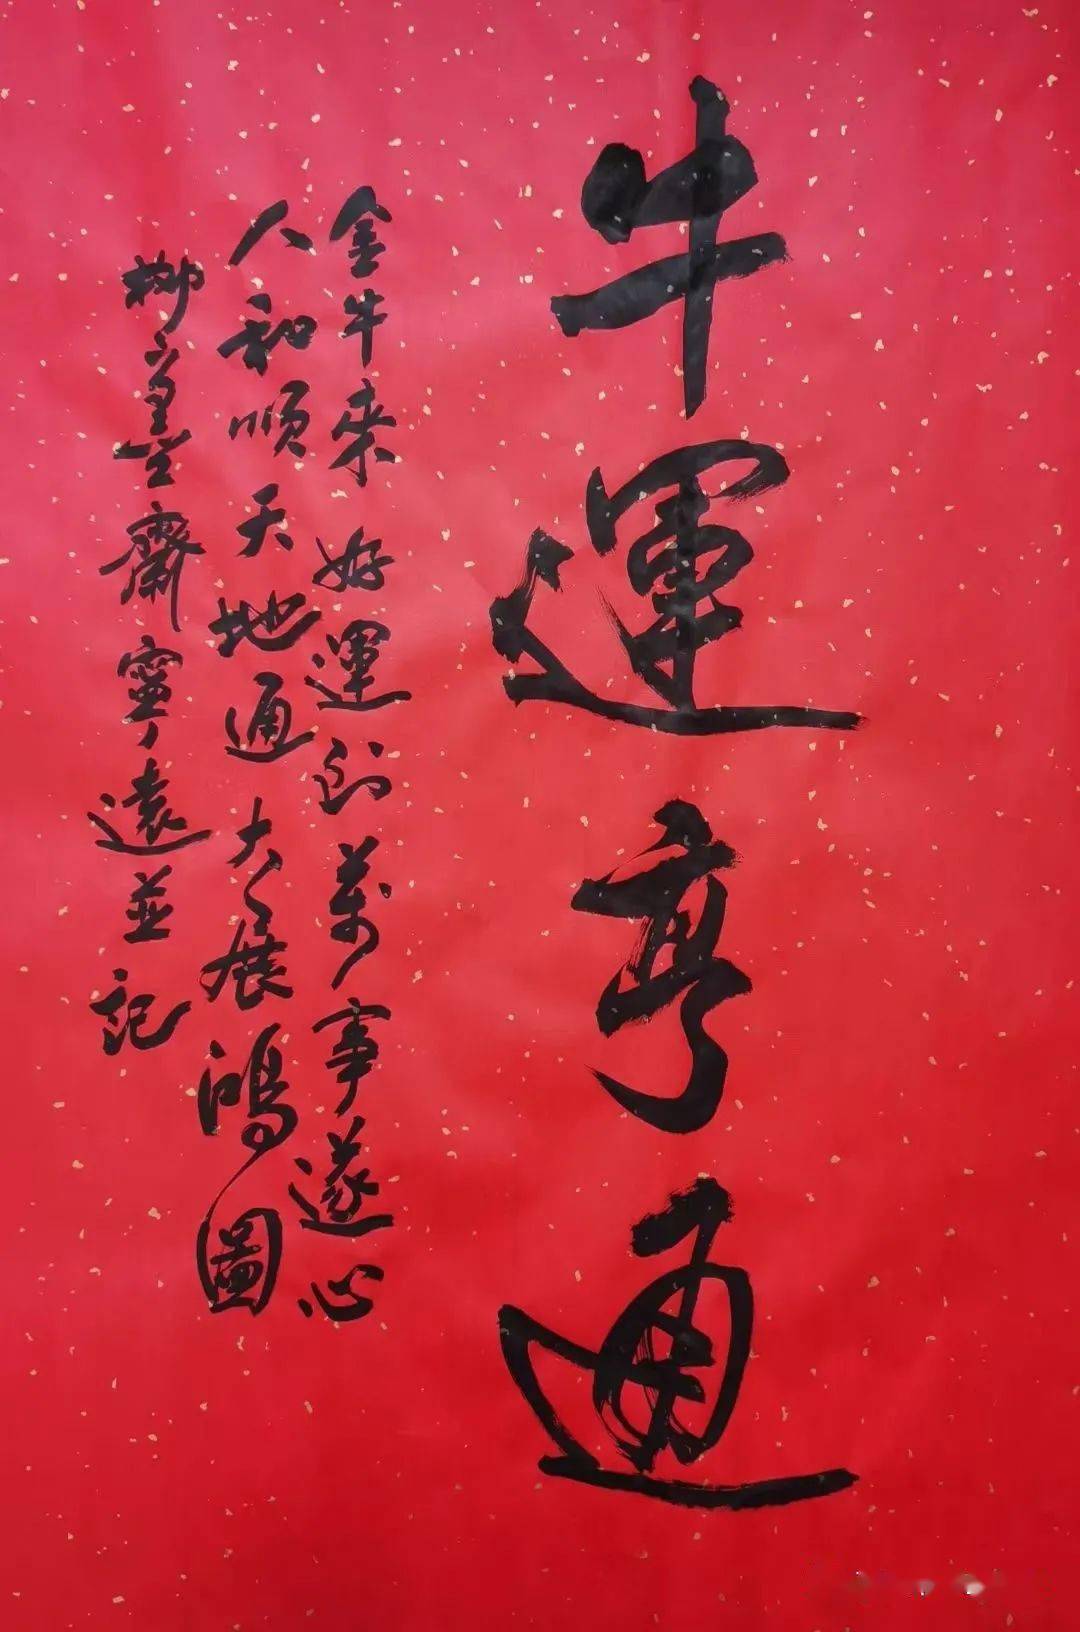 牛運亨通
金牛来好運到萬事遂心
人和順天地通大展鴻圖
柳臺齋寧遠並記